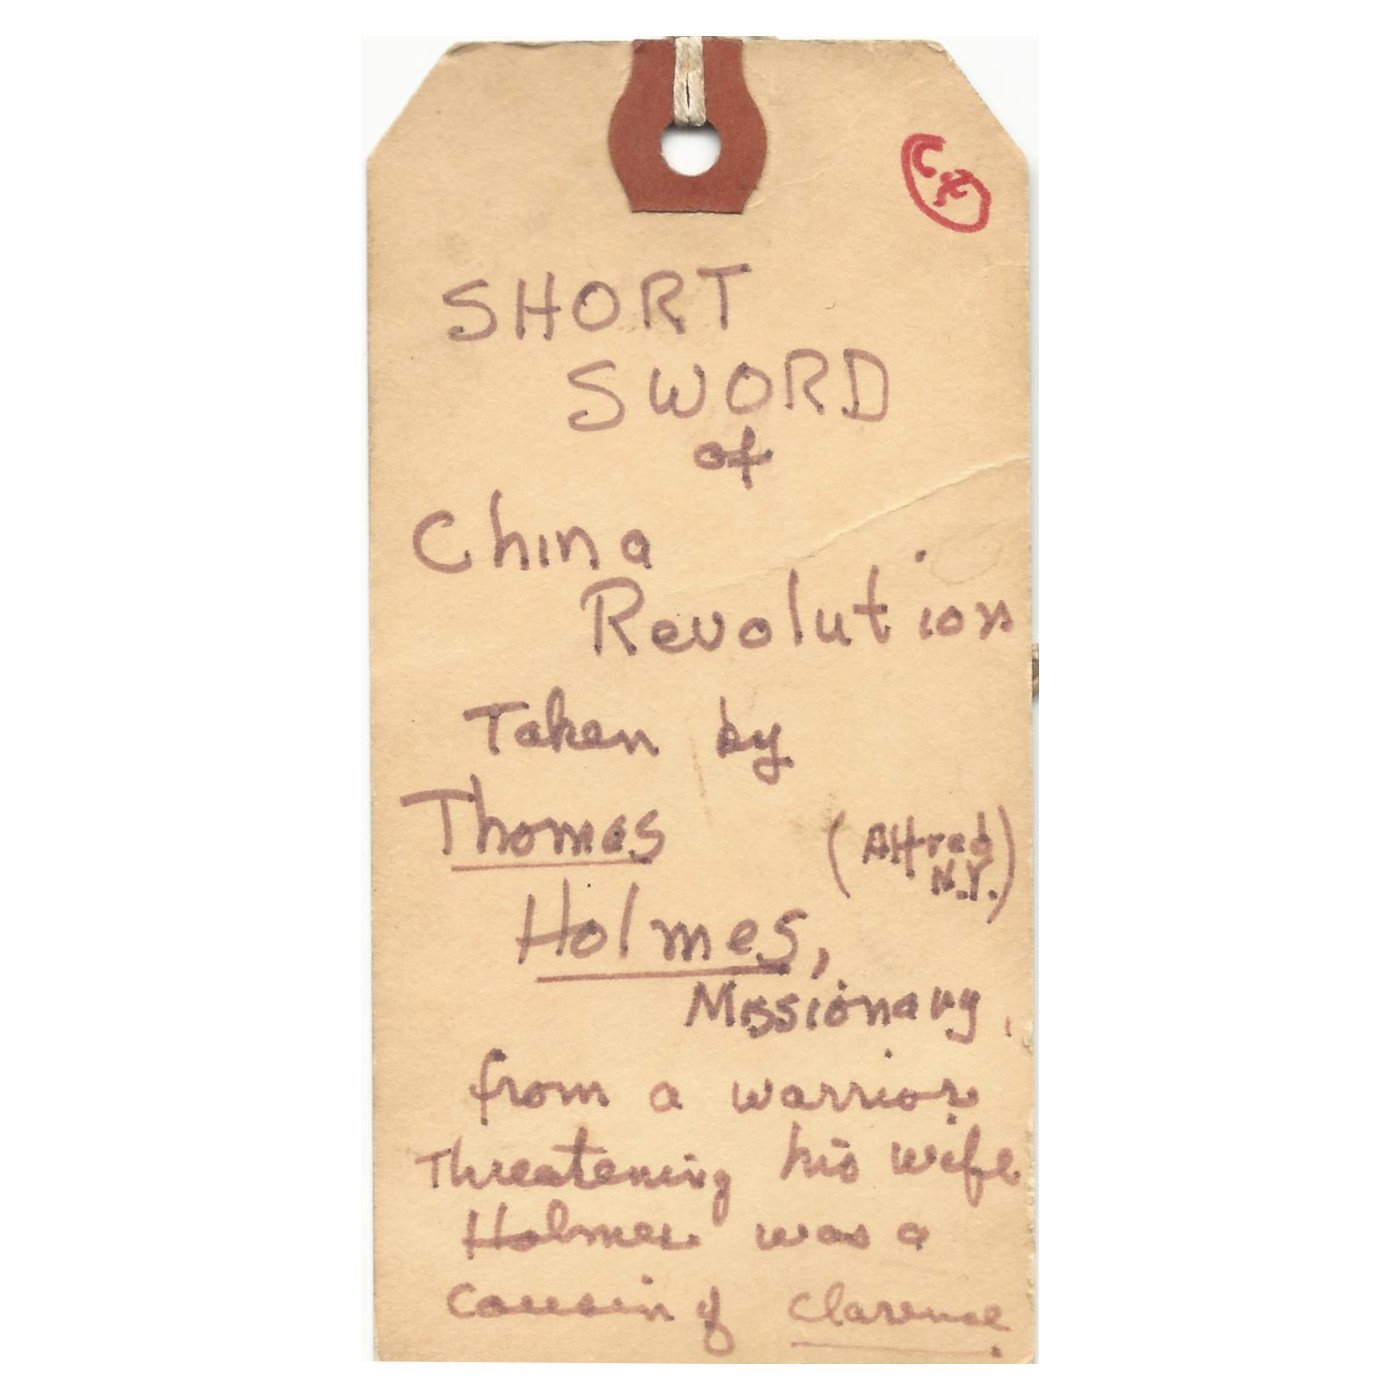 Cx
SHORT
SWORD
of
China
Revolution
Taken by
Thomas
(Alfred
N.Y.)
Holmes,
Missionary,
from a warrior
Threatening his wife
Holmes was a
cousin of Clarence